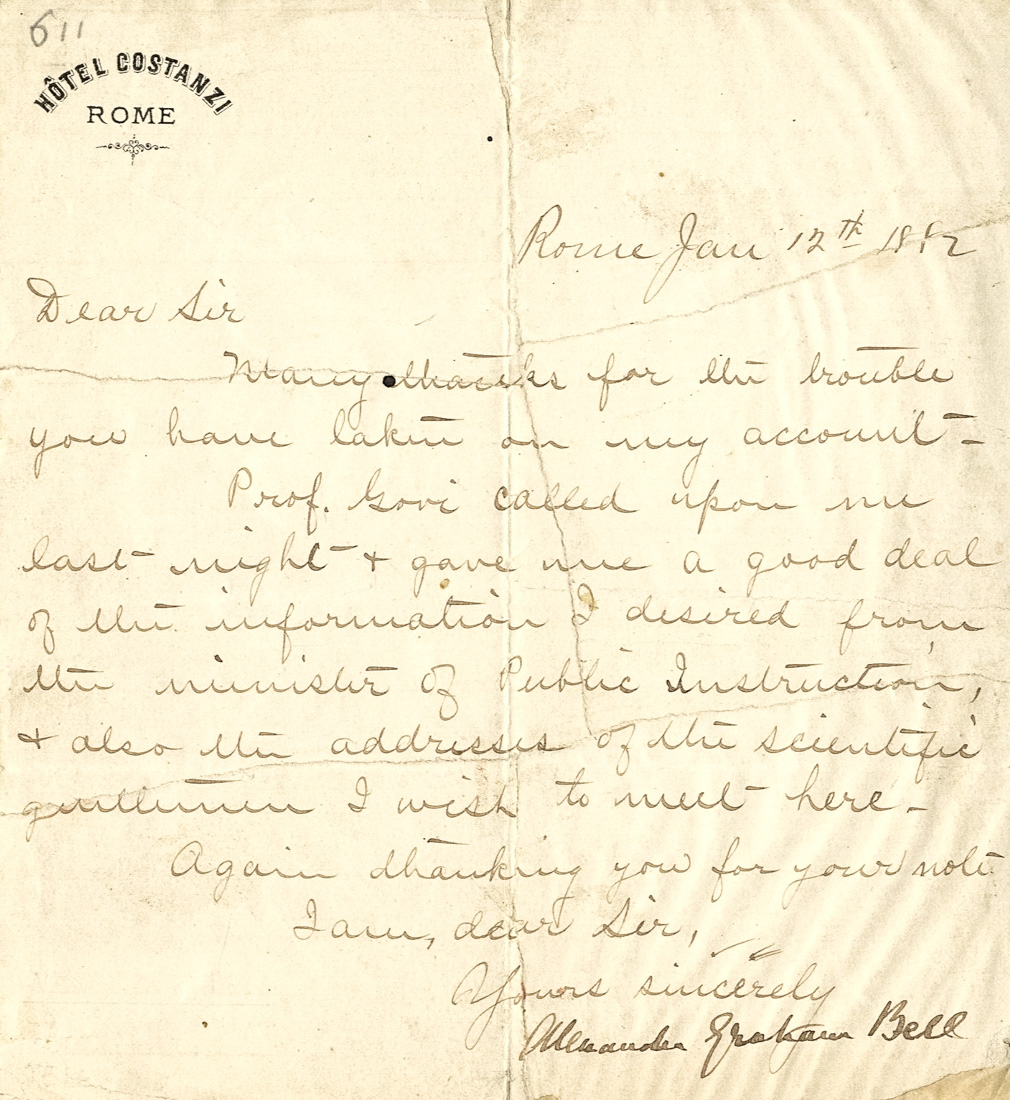 611
HÔTEL COSTANZI
ROME
Rome Jan 12th 1882
Dear Sir
Many thanks for the trouble
you have taken on my account -
Prof. Govi called upon me
last night + gave me a good deal
of the information I desired from
the minister of Public Instruction,
+ also the addresses of the scientific
gentlemen I wish to meet here -
Again thanking you for your note
I am, dear Sir,
Yours sincerely
Alexander Graham Bell